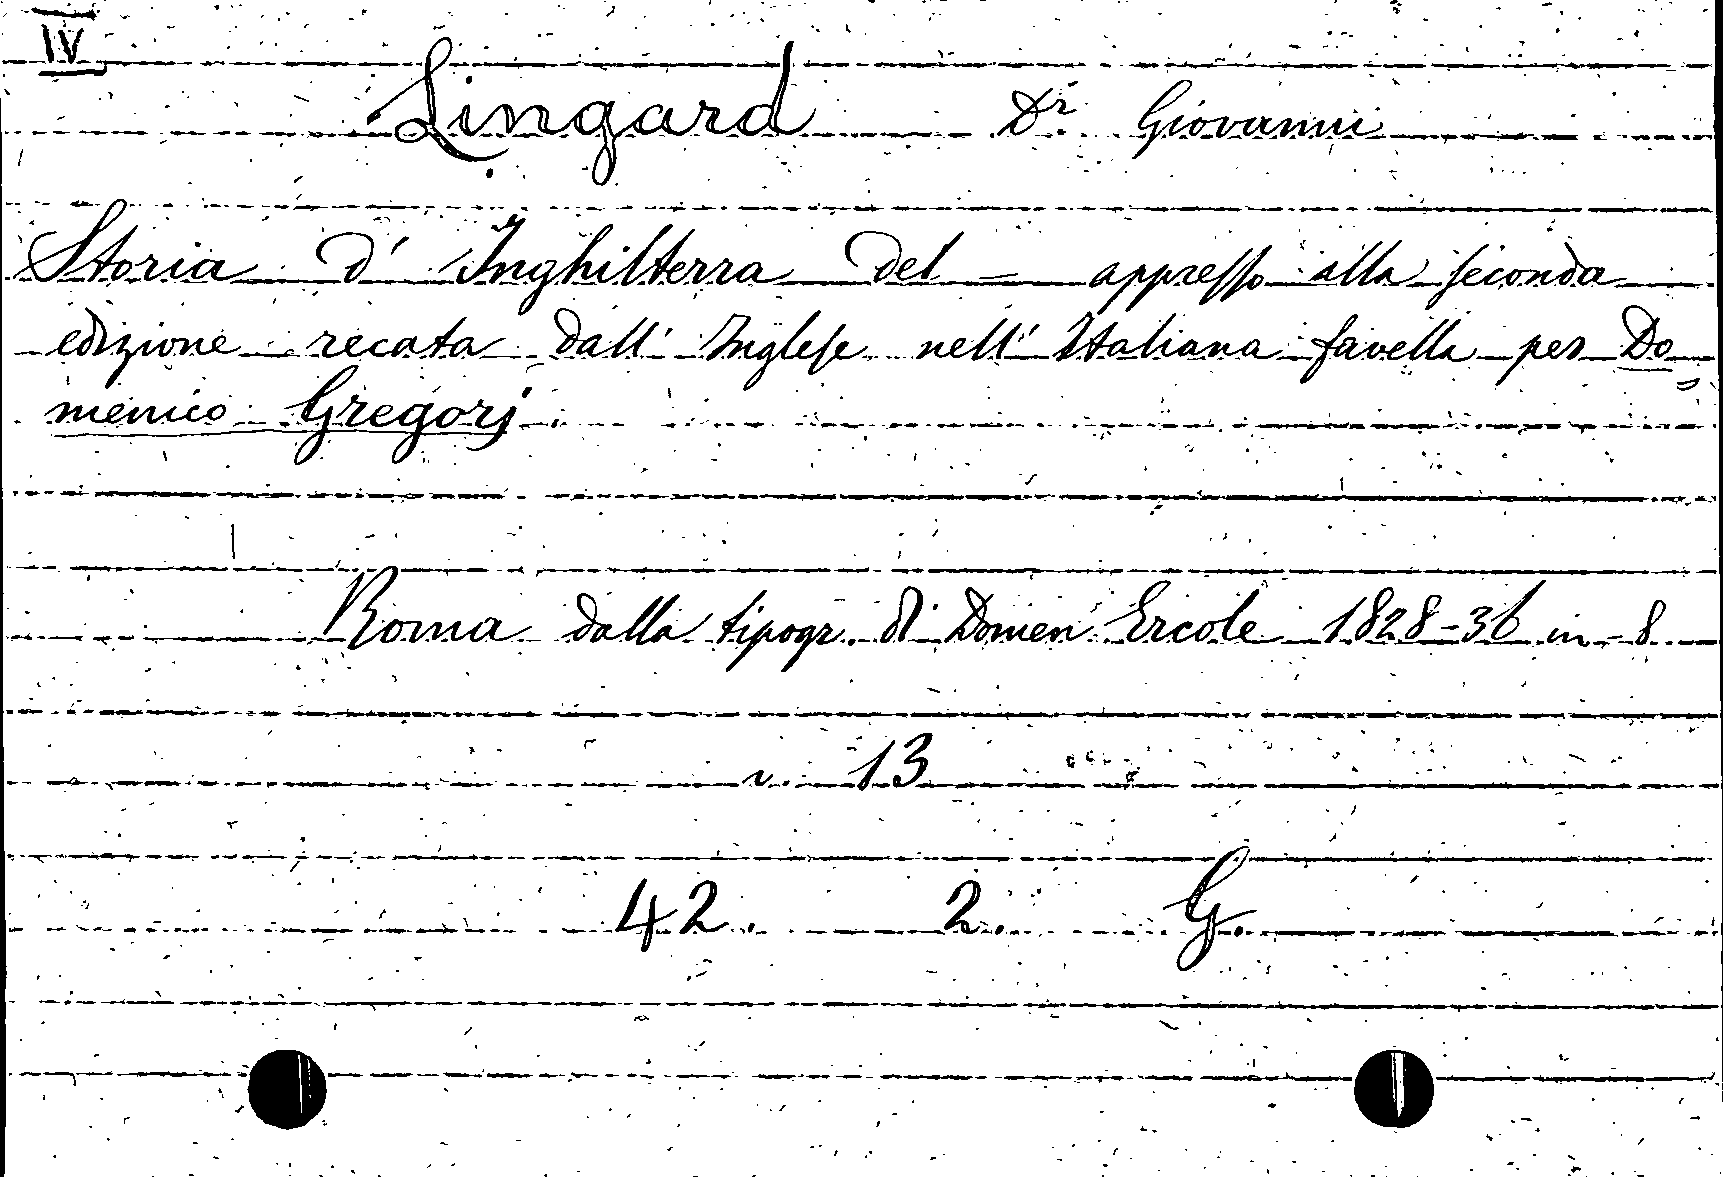 IV
Lingard Dr. Giovanni
Storia d' Inghilterra del = appresso alla seconda
edizione recata dall' Inglese nell' Italiana favella per Do=
menico Gregorj.
Roma dalla tipogr. di Domen Ercole 1828-36 in-8
v. 13
42. 2. G.